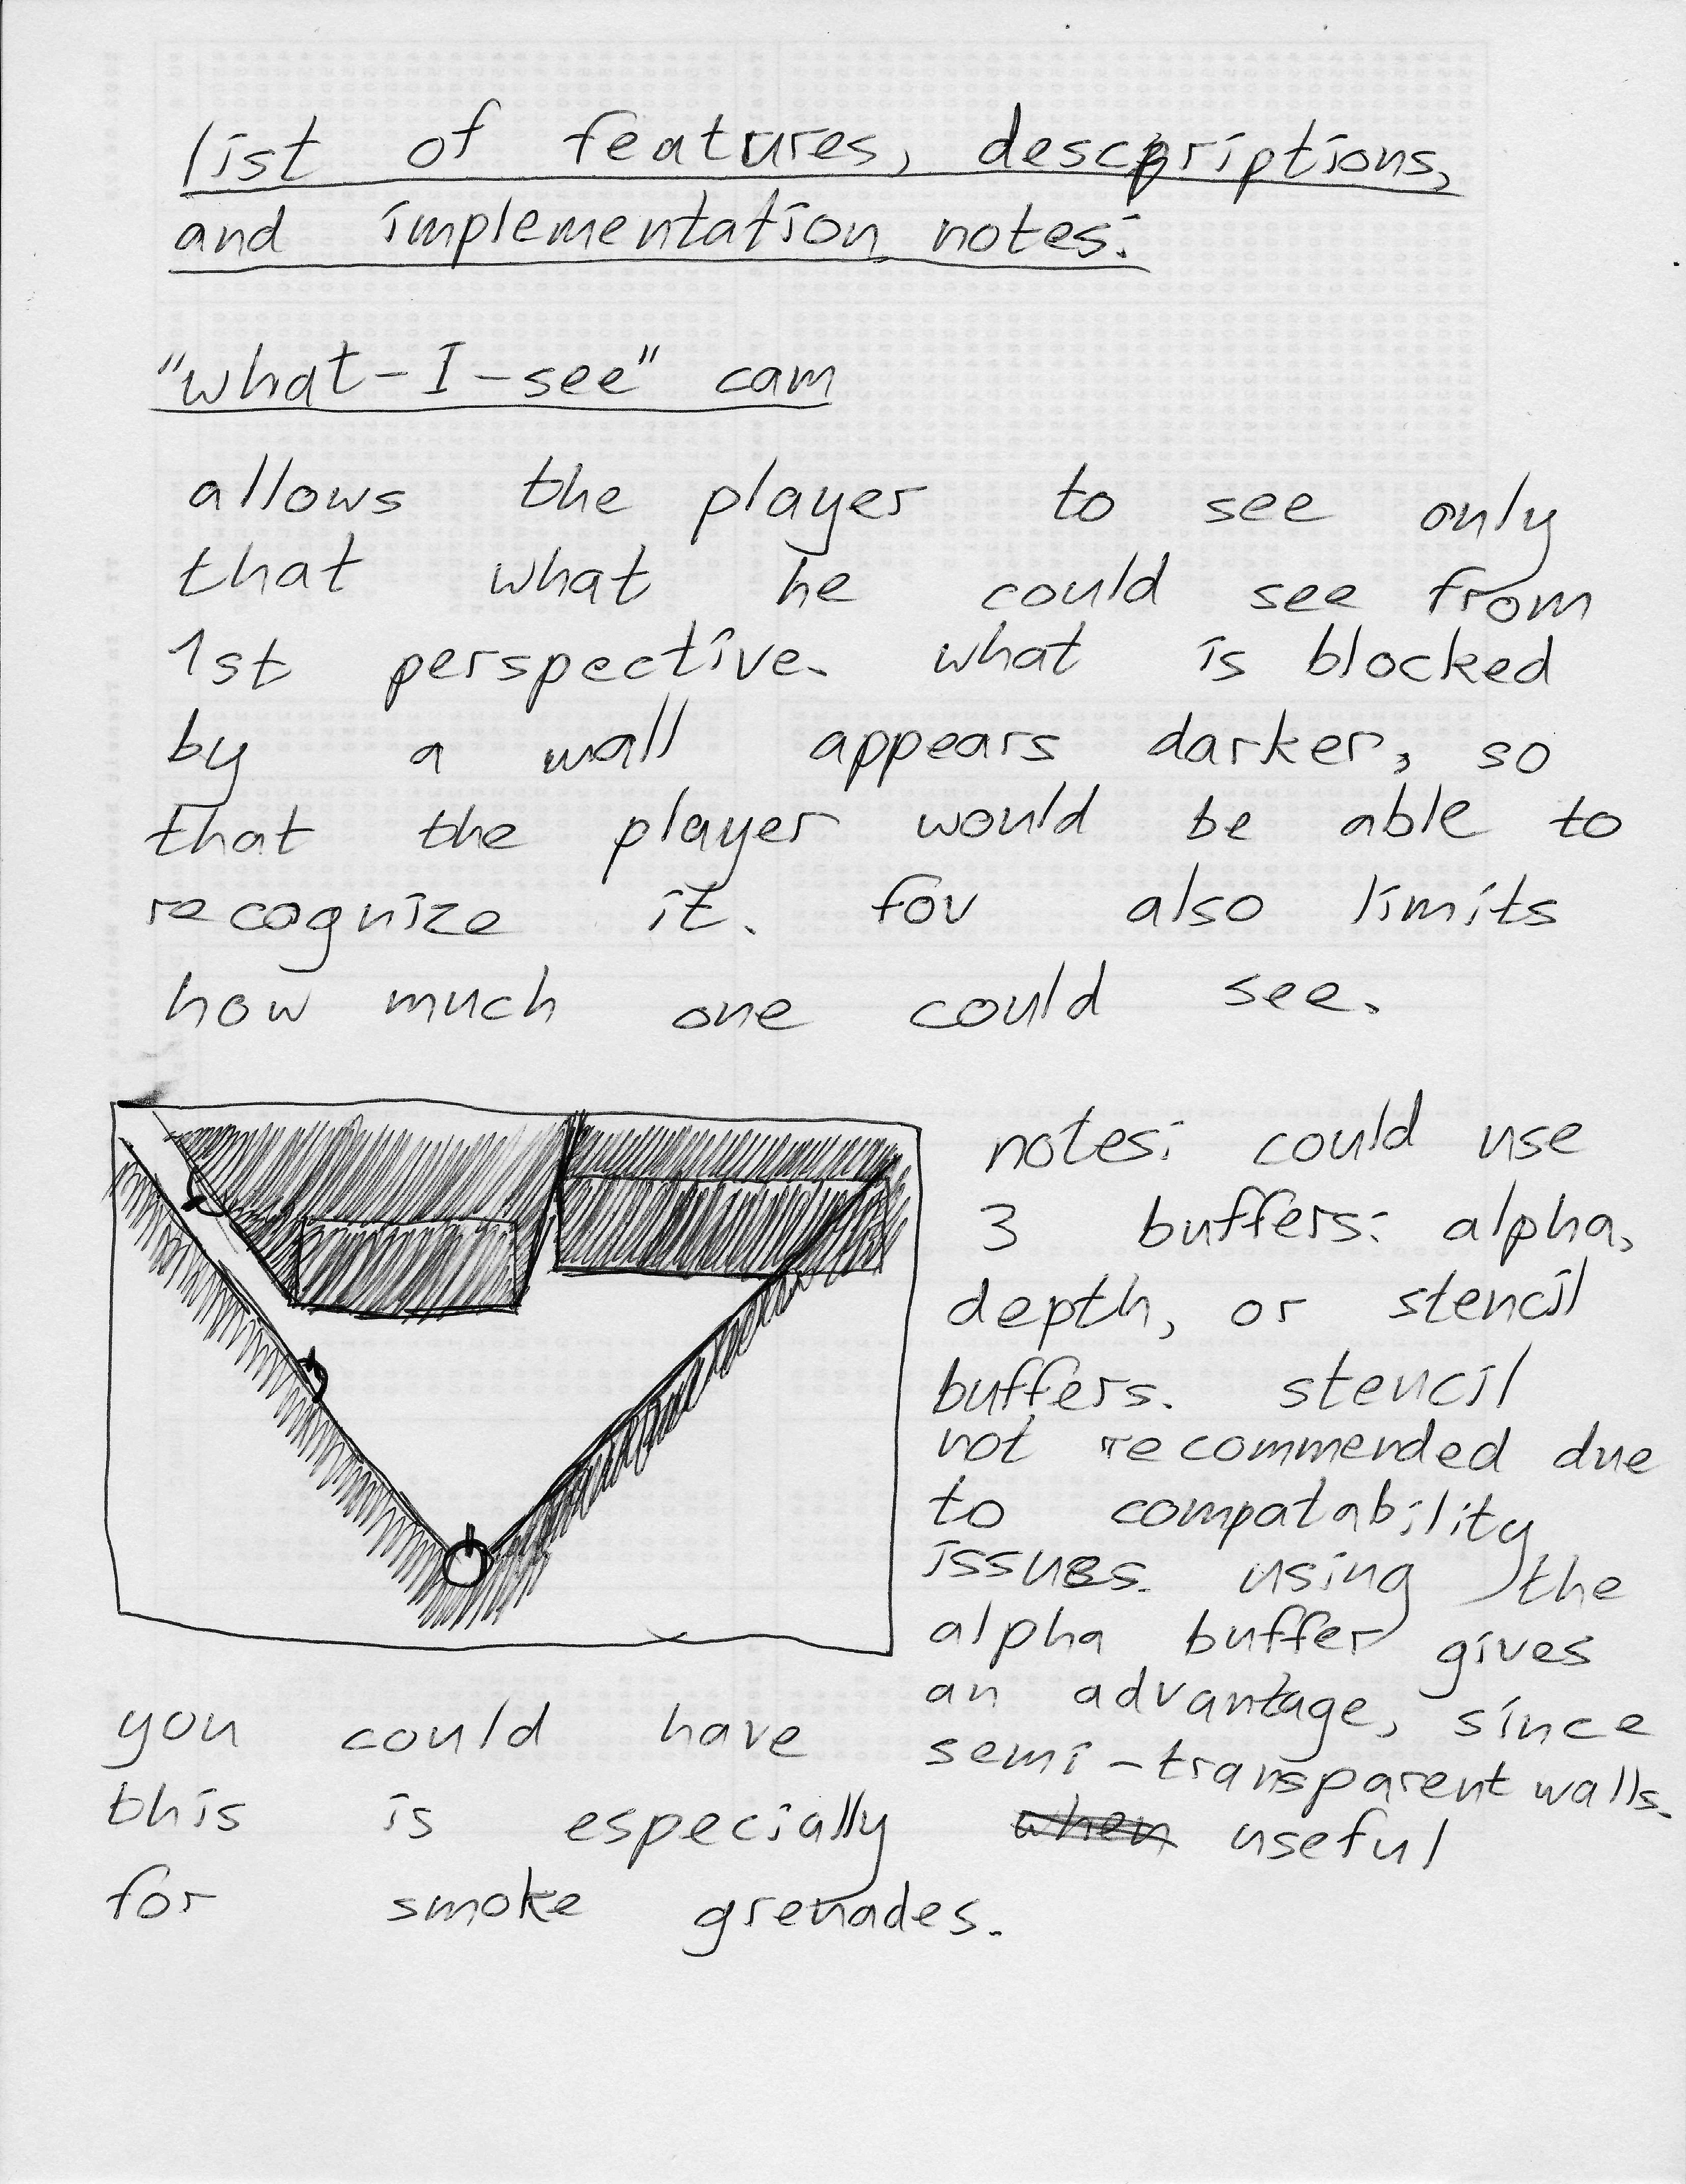 list of features, descriptions,
and implementation notes:
"what-I-see" cam
allows the player to see only
that what he could see from
1st perspective. what is blocked
by a wall appears darker, so
that the player would be able to
recognize it. fov also limits
how much one could see.
notes: could use
3 buffers: alpha,
depth, or stencil
buffers. stencil
not recommended due
to compatability
issues. using the
alpha buffer gives
an advantage, since
you could have semi-transparent walls.
this is especially when useful
for smoke grenades.